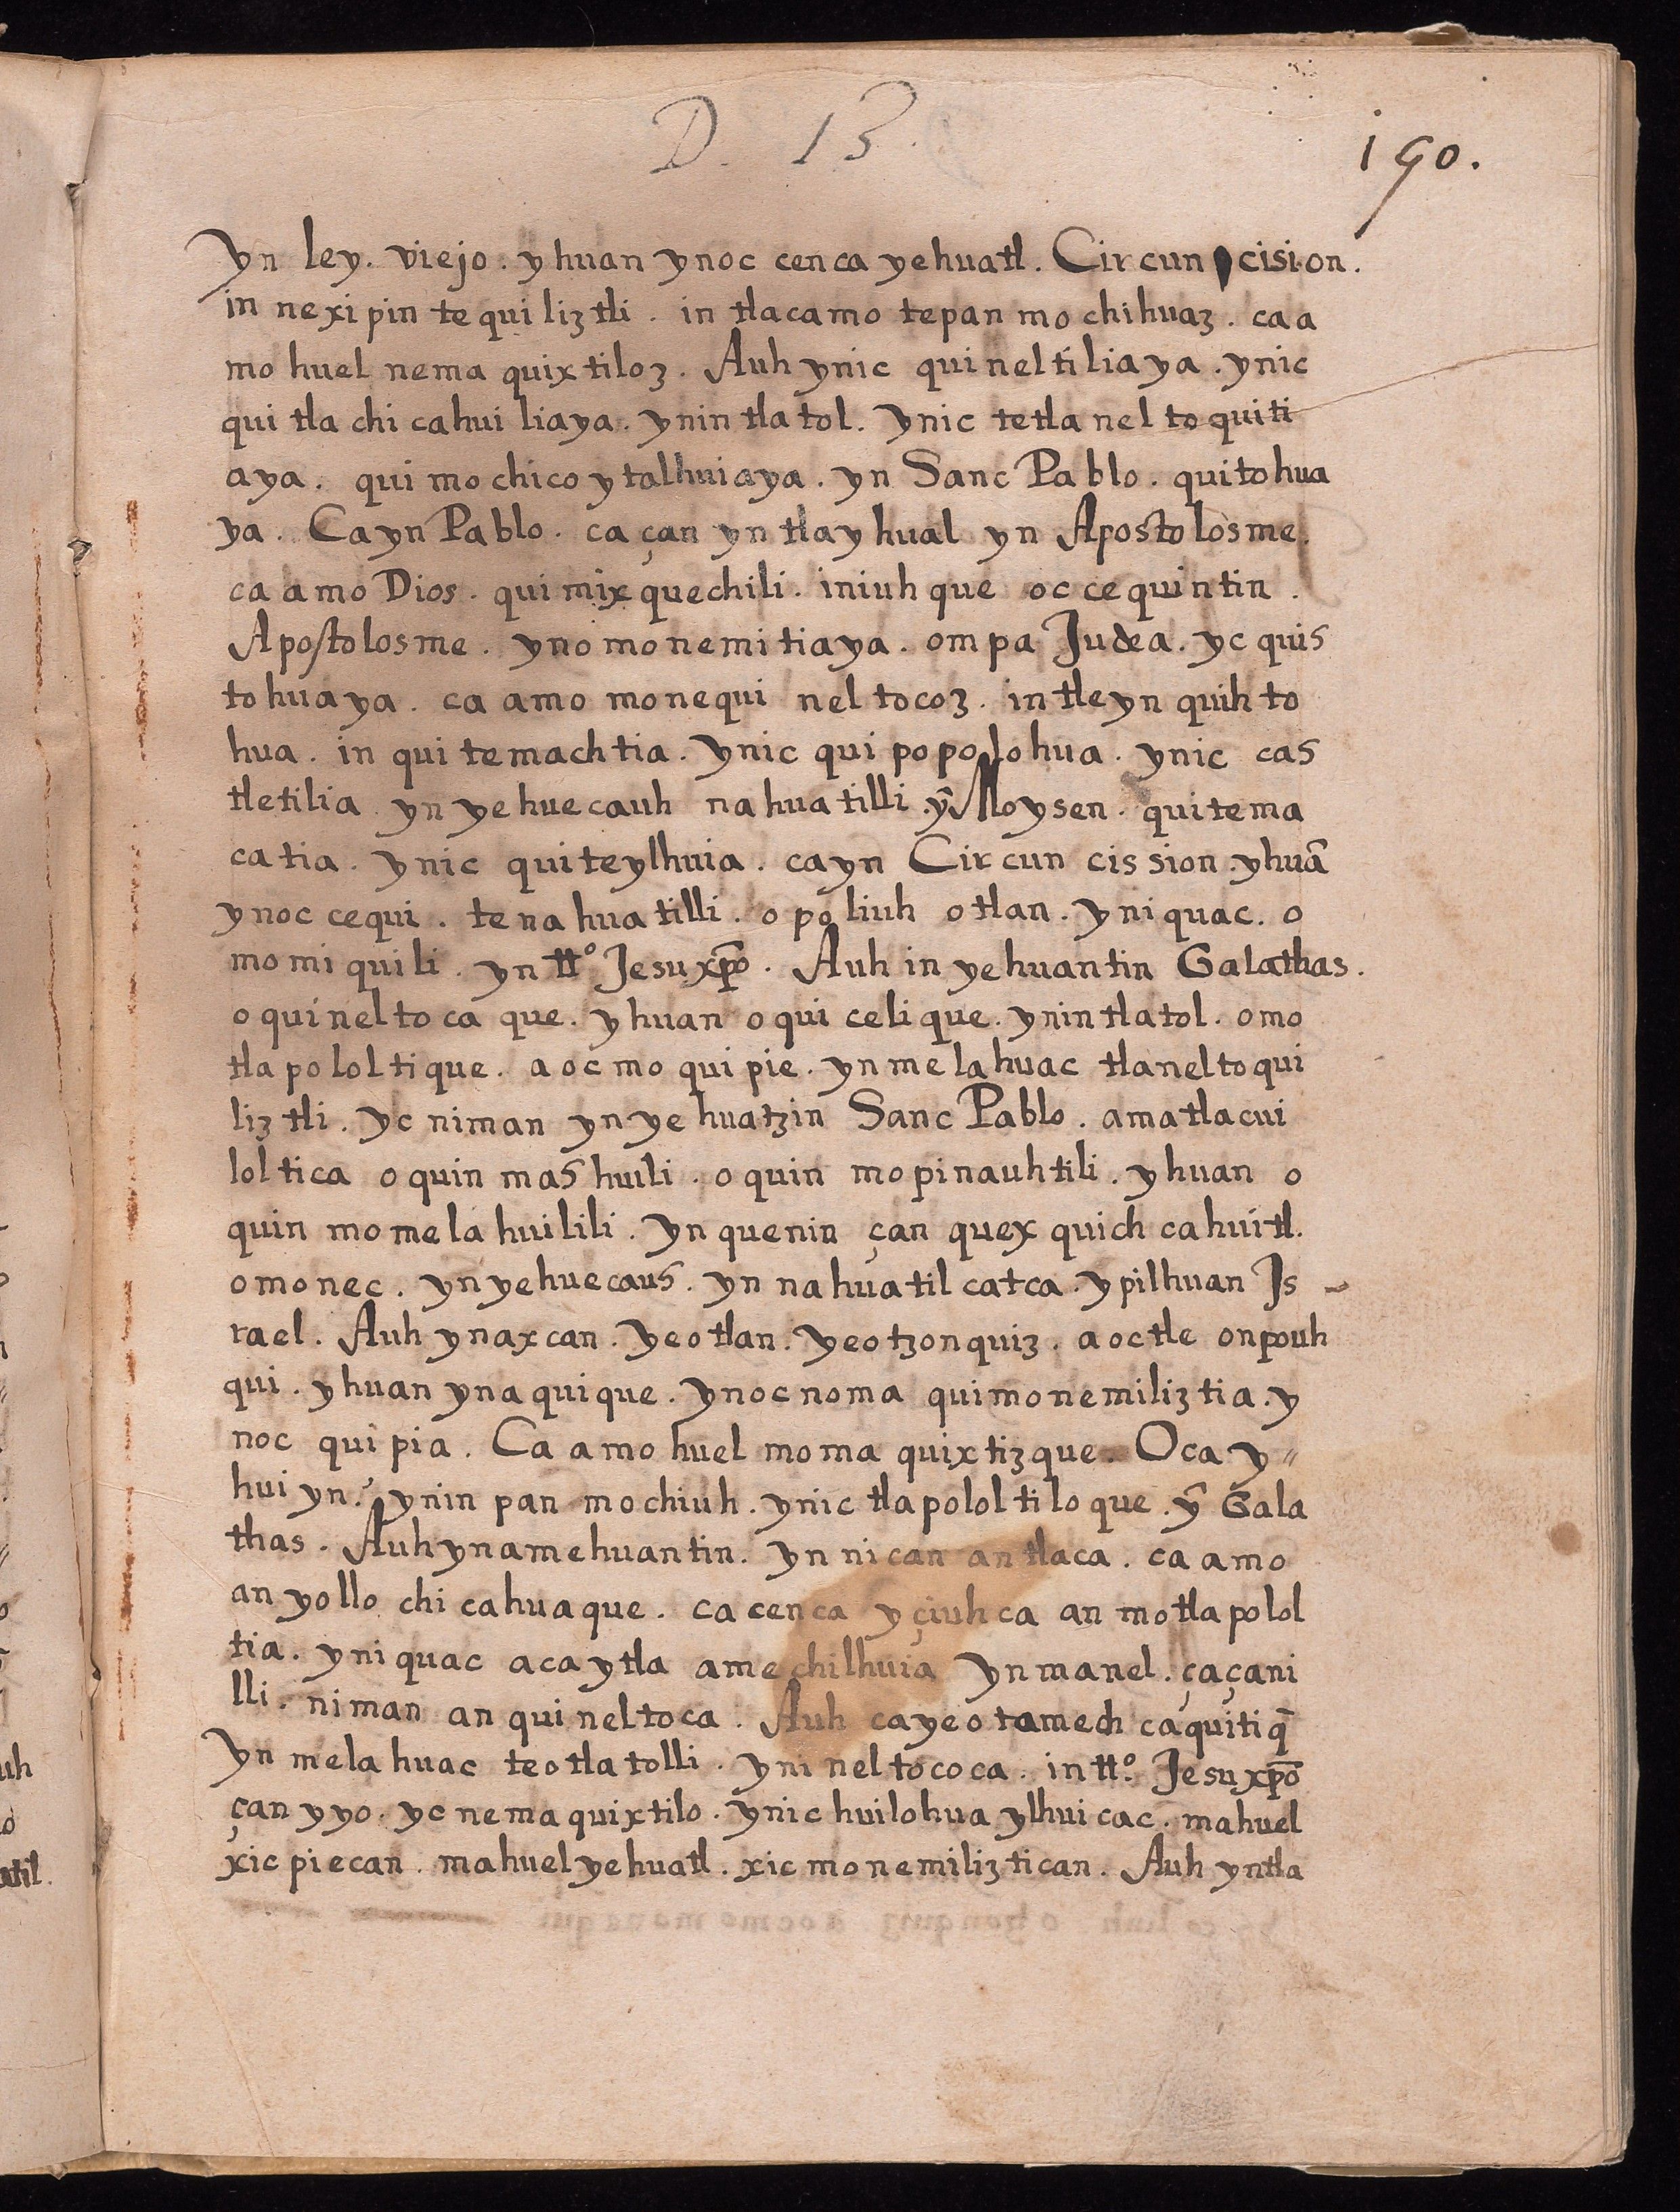 D. 13.
190.
Yn ley. viejo. yhuan ynoc cenca yehuatl. Circun cision.
in nexipintequiliztli. in tlacamo tepan mochihuaz. caa
mo huel nemaquixtiloz. Auh ynic quineltiliaya. ynic
quitlachicahuiliaya. ynintlatol. ynic tetlaneltoquiti
aya. quimochicoytalhuiaya. yn Sanc Pablo. quitohua
ya. Cayn Pablo. ca çan yn tlayhual yn Apostolosme.
ca amo Dios. quimixquechili. iniuhque occequintin.
Apostolosme. ynomonemitiaya. ompa Judea. yc quis
tohuaya. ca amo monequi neltocoz. intleyn quihto
hua. in quitemachtia. ynic quipopolohua. ynic cas
tletilia yn yehuecauh nahuatilli. ỹ Moysen. quitema
catia. ynic quiteylhuia. cayn Circun cission. yhuã
ynoccequi. tenahuatilli. opoliuh otlan. yniquac. o
momiquili. yn tt.º Jesuxp̃o. Auh in yehuantin Galathas.
oquineltocaque. yhuan oquicelique. ynintlatol. omo
tlapololtique. aocmo quipie. yn melahuac tlaneltoqui
liztli. yc niman yn yehuatzin Sanc Pablo. amatlacui
loltica oquinmashuili. oquin mopinauhtili. yhuan o
quin momelahuilili. yn quenin çan quexquich cahuitl.
omonec. yn yehuecaus. yn nahuatil catca. ypilhuan Js
rael. Auh ynaxcan. yeotlan. yeotzonquiz. aoctle onpouh
qui. yhuan ynaquique. ynocnoma quimonemiliztia. y
noc quipia. Ca amo huel momaquixtizque. Oca y"
hui yn. ynin pan mochiuh. ynic tlapololtiloque. ỹ Gala
thas. Auh ynamehuantin. yn nican antlaca. ca amo
anyollo chicahuaque. ca cenca yçiuhca anmotlapolol
tia. yniquac acaytla amechilhuia yn manel. çaçani
lli. niman anquineltoca. Auh cayeotamech caquitiq̃
Yn melahuac teotlatolli. yni neltococa. in tt.º Jesuxp̃o
çan yyo. yc nemaquixtilo. ynic huilohua ylhuicac. mahuel
xicpiecan. mahuel yehuatl. xicmonemiliztican. Auh yntla